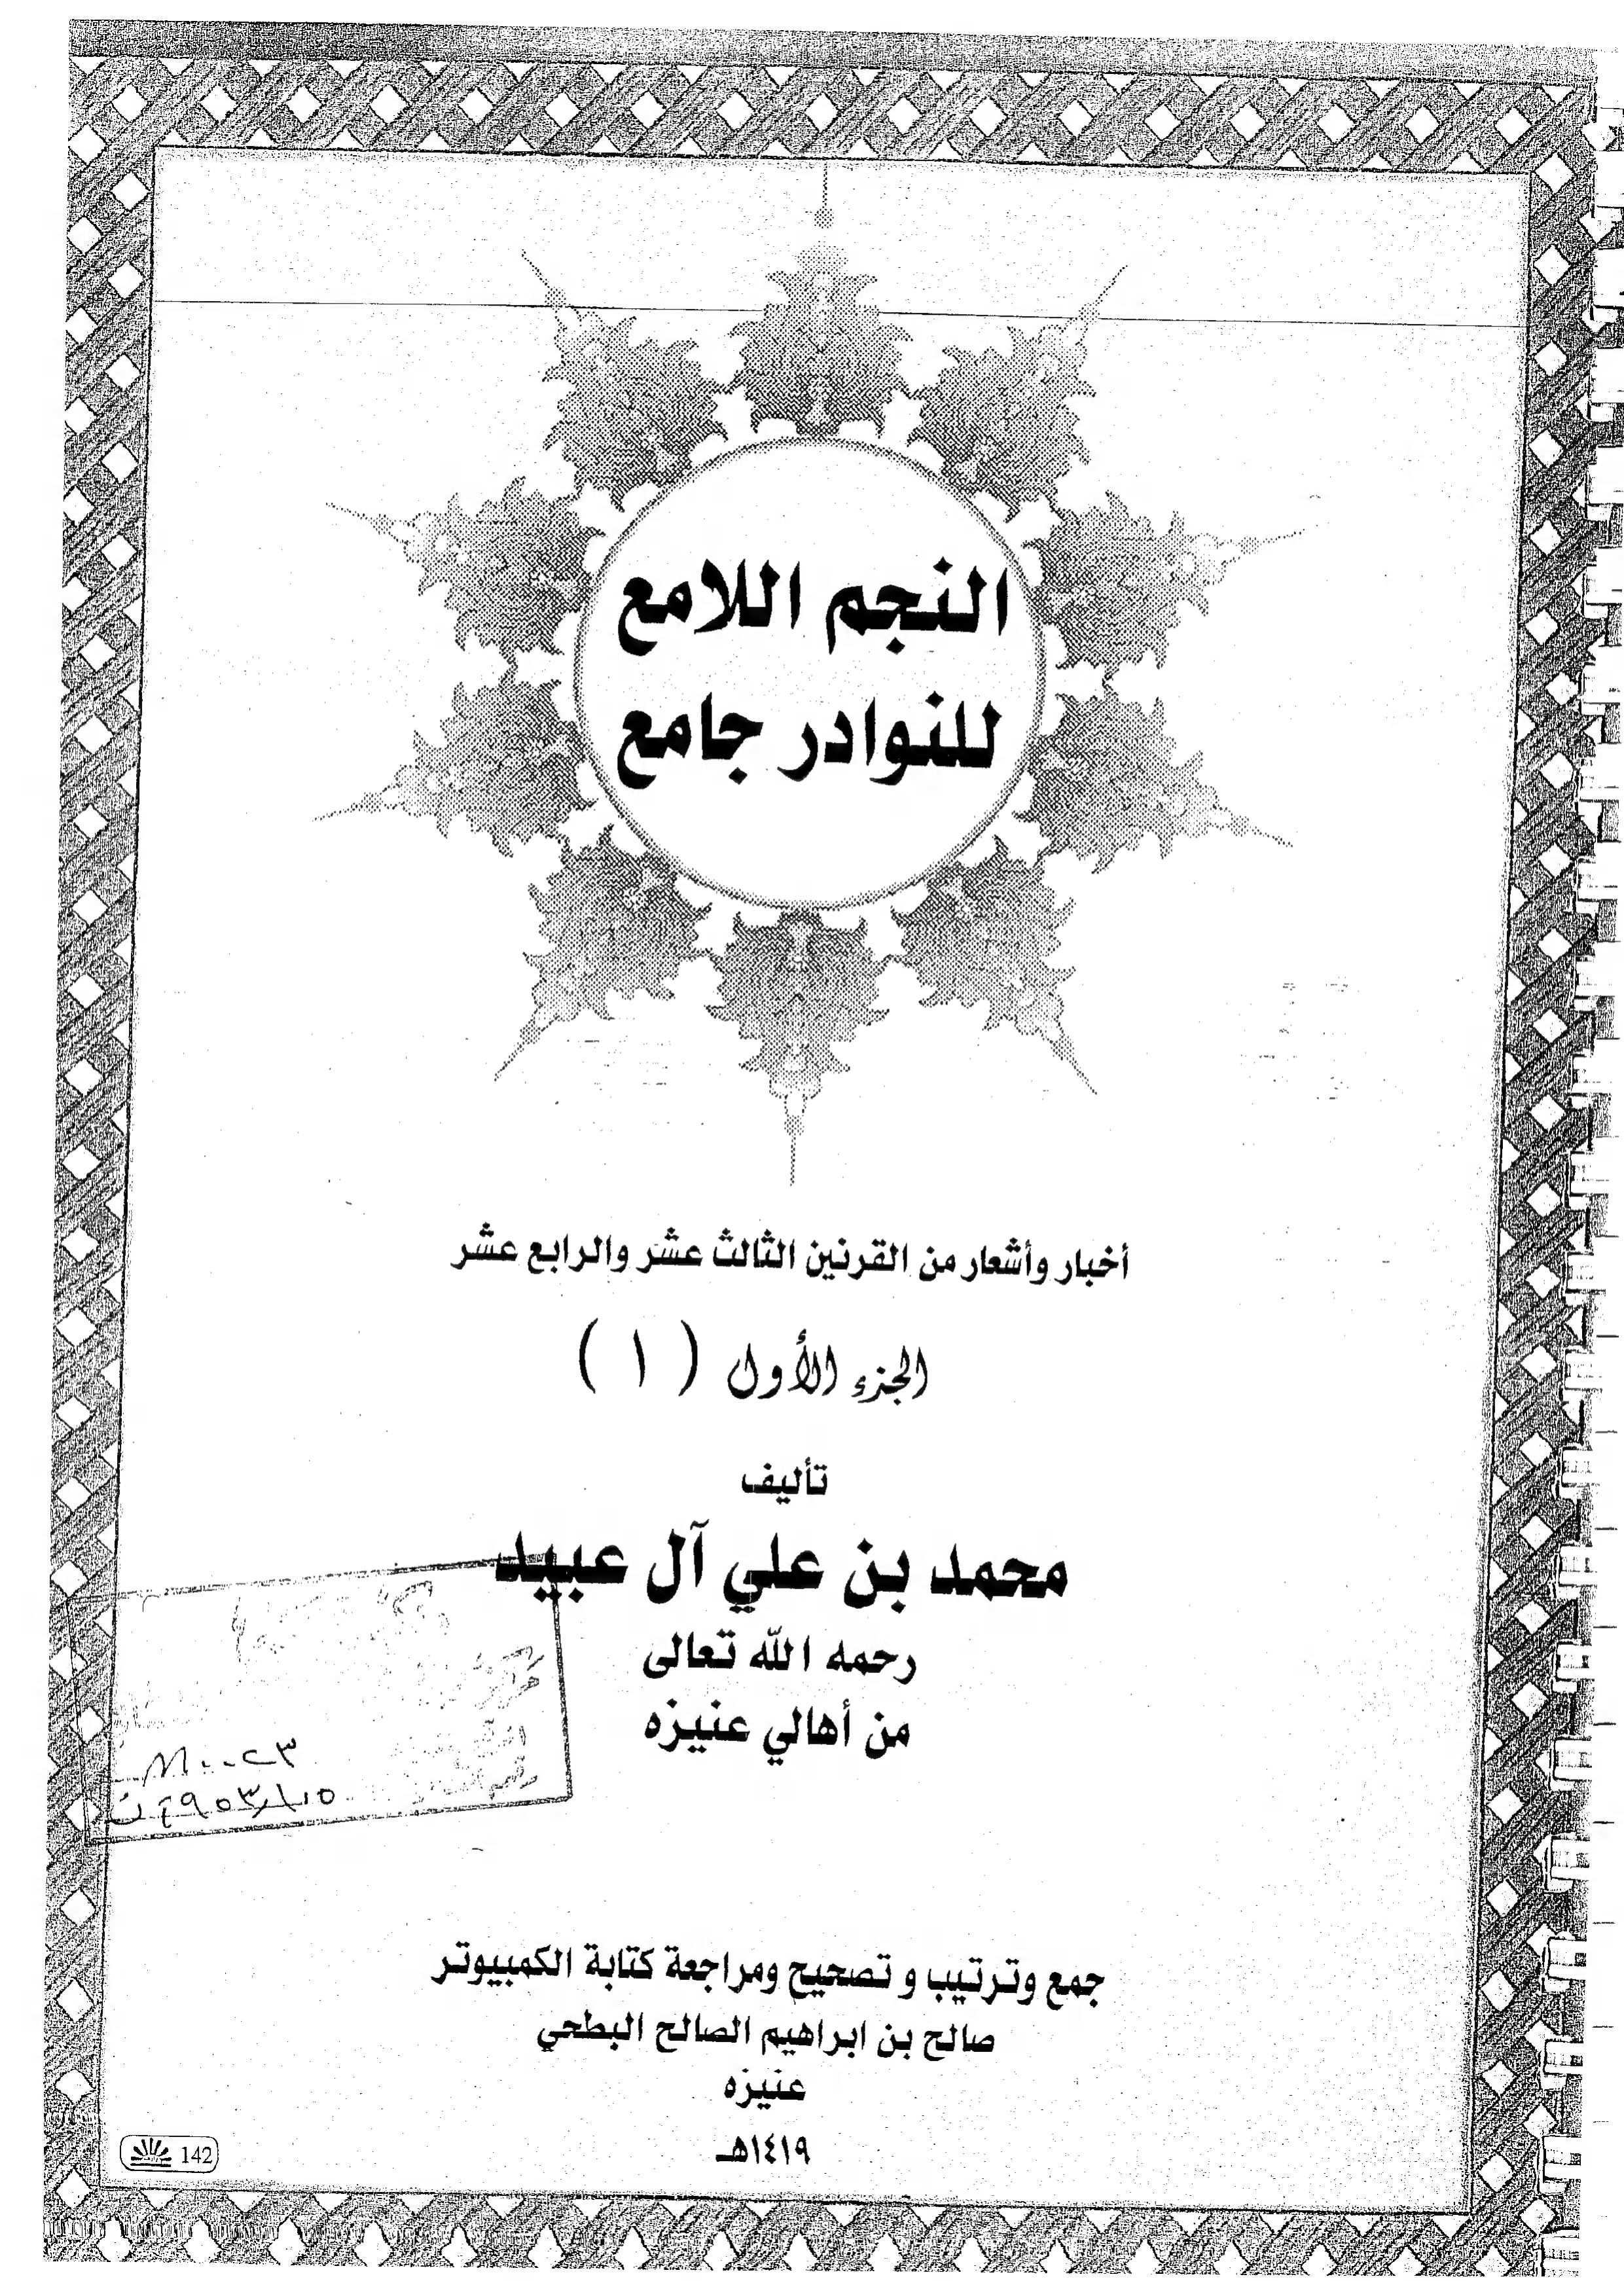 النجم اللامع
للنوادر جامع
أخبار وأشعار من القرنين الثالث عشر والرابع عشر
الجزء الأول ( ١ )
تأليف
محمد بن علي آل عبيد
رحمه الله تعالى
من أهالي عنيزه
جمع وترتيب و تصحيح ومراجعة كتابة الكمبيوتر
صالح بن ابراهيم الصالح البطحي
عنيزه
١٤١٩هـ
142